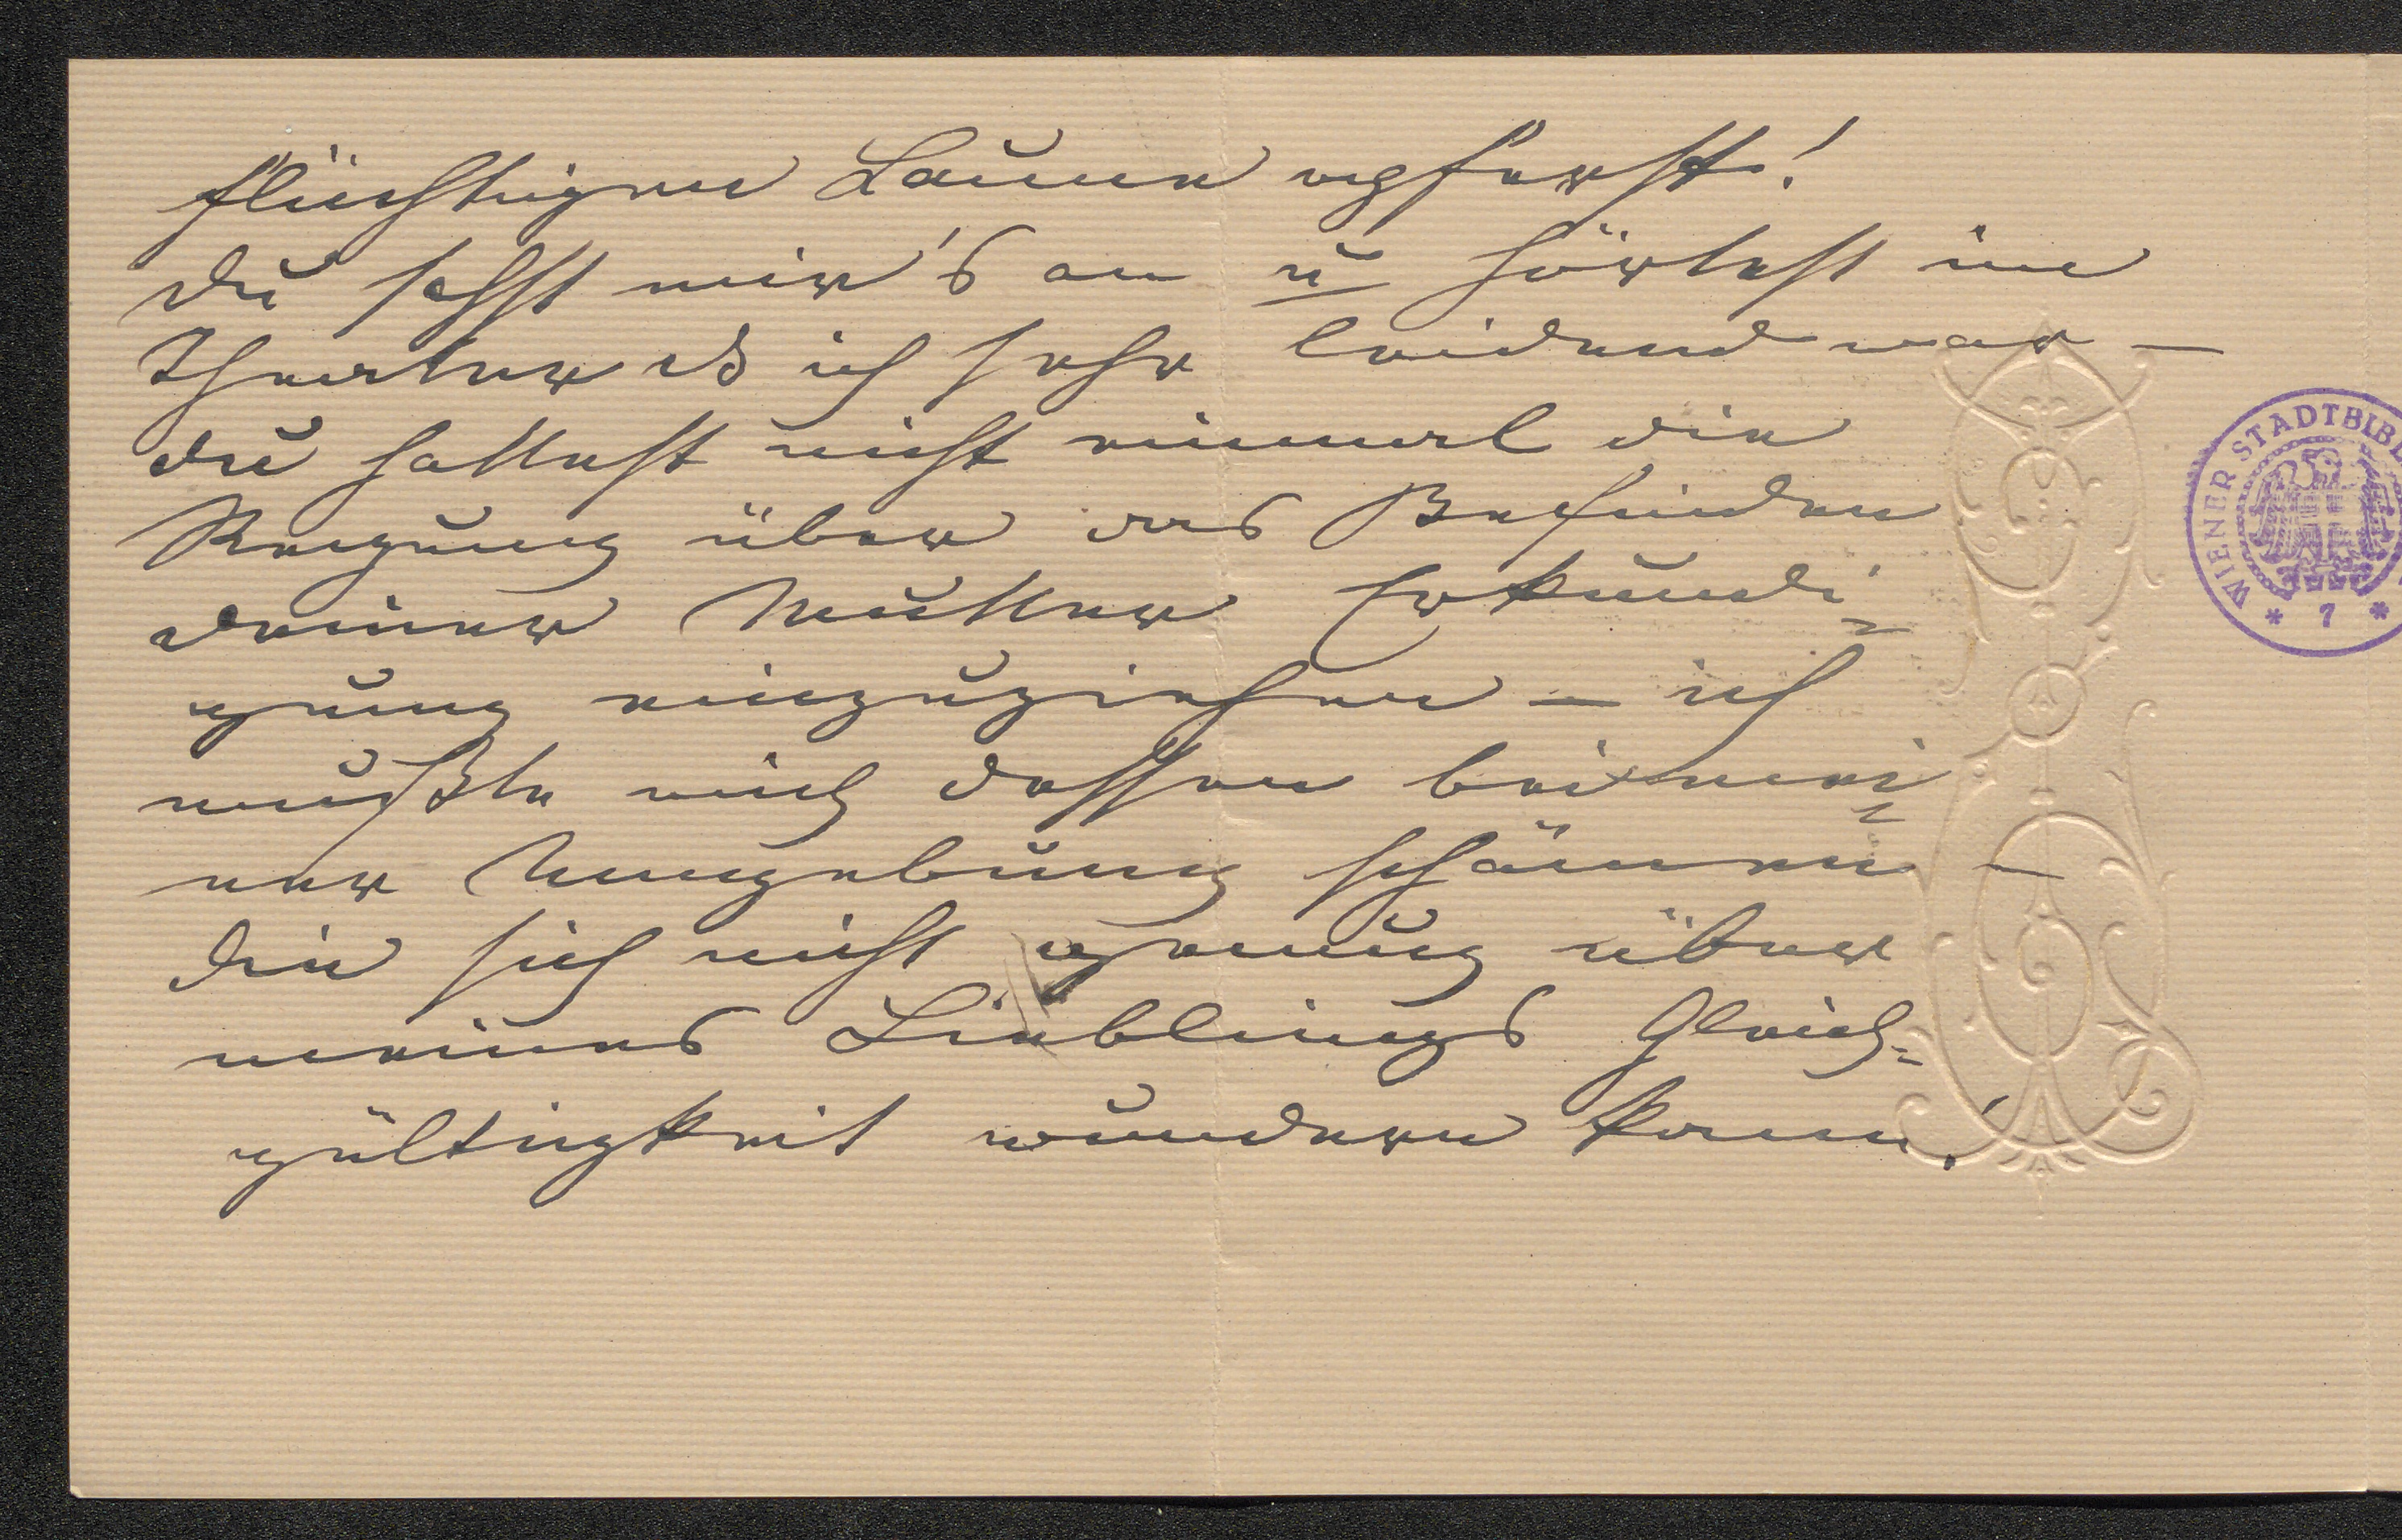 flüchtigen Laune opferst!
Du sahst mir's an u hörtest im
Theater daß ich sehr leidend war —
Du hattest nicht einmal die
Regung über das Befinden
Deiner Mutter Erkundi-
gung einzuziehen — ich
mußte mich dessen bei mei-
ner Umgebung schämen —
Die sich nicht genug über
meines Lieblings Gleich-
gültigkeit wundern kann!
WIENER STADTBIBL
* 7 *